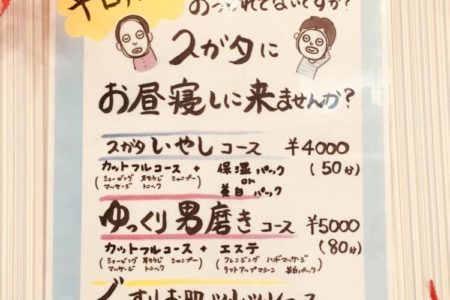 おつかれてないですか?
スガタに
お昼寝しに来ませんか?
スガタ いやし コース ¥4000
カットフルコース + 保湿パック (50分)
(シェービング 耳そうじ シャンプー or
マッサージ トニック) 美白パック
ゆっくり男磨き コース ¥5000
カットフルコース + エステ (80分)
(シェービング 耳そうじ シャンプー (クレンジング ハンドマッサージ
マッサージ トニック) 美白パック)